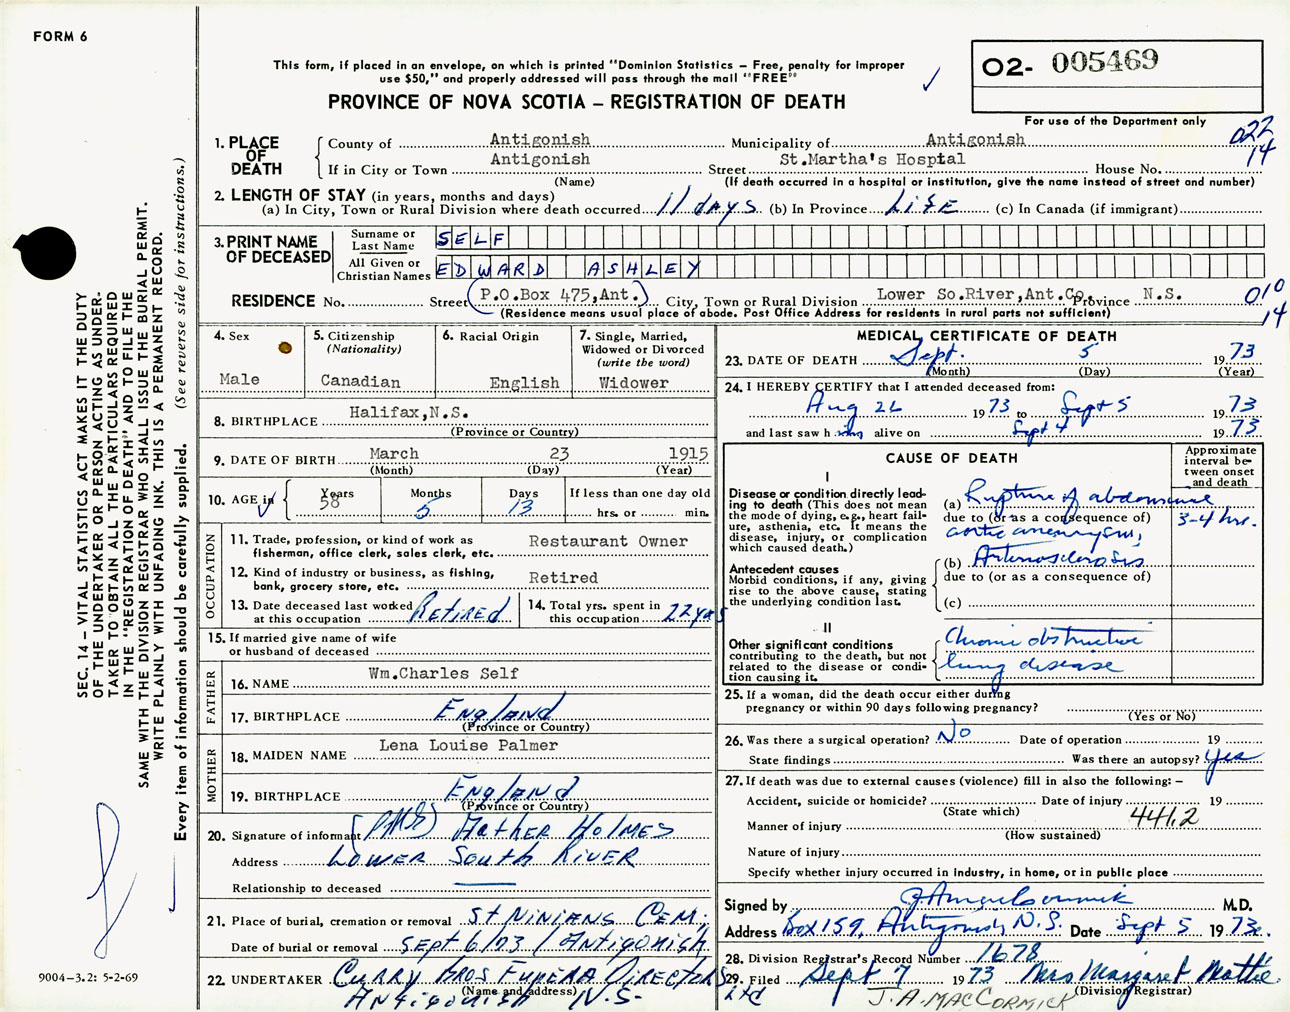 FORM 6
This form, if placed in an envelope, on which is printed "Dominion Statistics – Free, penalty for improper
use $50," and properly addressed will pass through the mail "FREE"
PROVINCE OF NOVA SCOTIA – REGISTRATION OF DEATH
O2- 005469
For use of the Department only
022
14
1. PLACE OF DEATH
County of Antigonish Municipality of Antigonish
If in City or Town Antigonish Street St.Martha's Hosptal House No.
(Name) (If death occurred in a hospital or institution, give the name instead of street and number)
2. LENGTH OF STAY (in years, months and days)
(a) In City, Town or Rural Division where death occurred 11 days (b) In Province Life (c) In Canada (if immigrant)
3. PRINT NAME OF DECEASED
Surname or Last Name SELF
All Given or Christian Names EDWARD ASHLEY
RESIDENCE No. Street (P.O.Box 475,Ant.) City, Town or Rural Division Lower So.River,Ant.Co. Province N.S.
(Residence means usual place of abode. Post Office Address for residents in rural parts not sufficient)
010
14
4. Sex
Male
5. Citizenship (Nationality)
Canadian
6. Racial Origin
English
7. Single, Married, Widowed or Divorced (write the word)
Widower
8. BIRTHPLACE Halifax,N.S.
(Province or Country)
9. DATE OF BIRTH March 23 1915
(Month) (Day) (Year)
10. AGE in Years 58 Months 5 Days 13 If less than one day old
hrs. or min.
OCCUPATION
11. Trade, profession, or kind of work as fisherman, office clerk, sales clerk, etc. Restaurant Owner
12. Kind of industry or business, as fishing, bank, grocery store, etc. Retired
13. Date deceased last worked at this occupation Retired
14. Total yrs. spent in this occupation 22 yrs
15. If married give name of wife
or husband of deceased
FATHER
16. NAME Wm.Charles Self
17. BIRTHPLACE England
(Province or Country)
MOTHER
18. MAIDEN NAME Lena Louise Palmer
19. BIRTHPLACE England
(Province or Country)
20. Signature of informant (Mrs) Holmes
Address Lower South River
Relationship to deceased
21. Place of burial, cremation or removal St Ninians Cem;
Date of burial or removal Sept 6/73 / Antigonish
22. UNDERTAKER Curry Bros Funeral Directors Ltd
(Name and address)
Antigonish N.S.
MEDICAL CERTIFICATE OF DEATH
23. DATE OF DEATH Sept. 5 1973
(Month) (Day) (Year)
24. I HEREBY CERTIFY that I attended deceased from:
Aug 26 1973 to Sept 5 1973
and last saw h im alive on Sept 4 1973
CAUSE OF DEATH
Approximate interval between onset and death
I
Disease or condition directly leading to death (This does not
mean the mode of dying, e.g., heart failure, asthenia, etc. It means the
disease, injury, or complication
which caused death.)
(a) Rupture of abdominal
due to (or as a consequence of)
aortic aneurysm,
3-4 hr.
Antecedent causes
Morbid conditions, if any, giving
rise to the above cause, stating
the underlying condition last.
(b) Arteriosclerosis
due to (or as a consequence of)
(c)
II
Other significant conditions
contributing to the death, but not
related to the disease or condition causing it.
Chronic obstructive
lung disease
25. If a woman, did the death occur either during
pregnancy or within 90 days following pregnancy?
(Yes or No)
26. Was there a surgical operation? No Date of operation 19
State findings Was there an autopsy? Yes
27. If death was due to external causes (violence) fill in also the following: –
Accident, suicide or homicide? Date of injury 19
(State which)
441.2
Manner of injury
(How sustained)
Nature of injury
Specify whether injury occurred in industry, in home, or in public place
Signed by J A MacCormick M.D.
Address Box 159, Antigonish, N.S. Date Sept 5 1973.
28. Division Registrar's Record Number 1678
29. Filed Sept 7 1973 Mrs Margaret Mattie
(Division Registrar)
J. A. MACCORMICK
SEC. 14 – VITAL STATISTICS ACT MAKES IT THE DUTY
OF THE UNDERTAKER OR PERSON ACTING AS UNDERTAKER
TO OBTAIN ALL THE PARTICULARS REQUIRED
IN THE "REGISTRATION OF DEATH" AND TO FILE THE
SAME WITH THE DIVISION REGISTRAR WHO SHALL ISSUE THE BURIAL PERMIT.
WRITE PLAINLY WITH UNFADING INK. THIS IS A PERMANENT RECORD.
Every item of information should be carefully supplied. (See reverse side for instructions.)
9004-3.2: 5-2-69